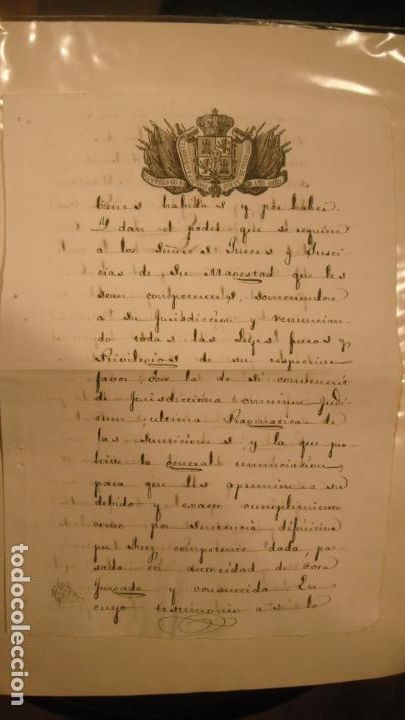 bienes habidos y por haber.
Y dan el poder que se requiere
a los Señores Jueces y Justi
cias de Su Magestad que les
sean competentes, sometiendose
a su Jurisdiccion y renuncian
do todas las Leyes fueros y
Privilegios de su respectivo
favor con la de si
de Jurisdictione omnium Judi
cum ultima Pragmatica de
las sumiciones y la que pro
hive la General renunciacion,
para que les apremien a su
debido y exacto cumplimiento
como por sentencia difinitiva
por Juez competente dada, pa
sada en autoridad de cosa
Juzgada y consentida. En
cuyo testimonio asi lo
todocoleccion.net